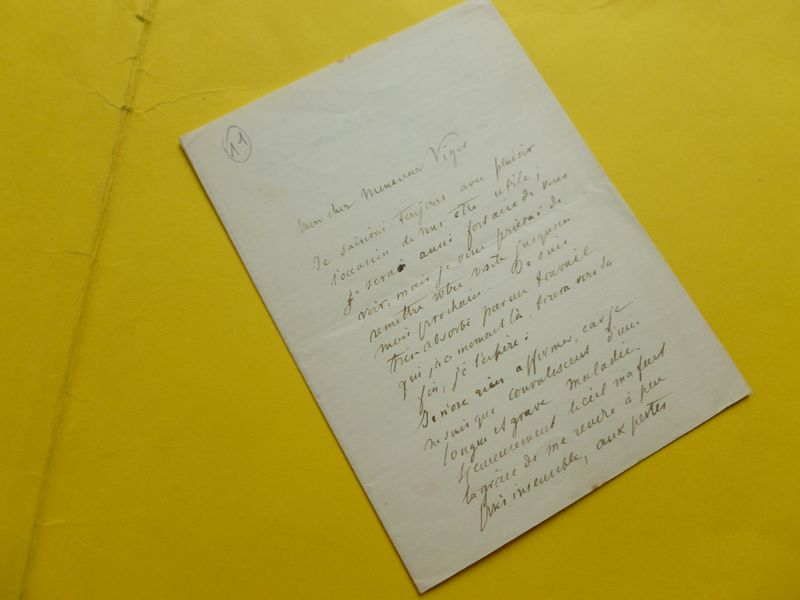 11
Mon cher Monsieur
Je saisirai toujours avec plaisir
l'occasion de vous être utile;
je serai aussi fort aise de vous
voir, mais je vous prierai de
remettre votre visite jusqu'au
mois prochain. Je suis
très-absorbé par un travail
qui, à ce moment là, tirera vers sa
fin, je l'espère.
Je n'ose rien affirmer, car je
ne suis que convalescent d'une
longue et grave maladie.
Heureusement le ciel m'a fait
la grâce de me rendre à peu
près insensible, aux pertes